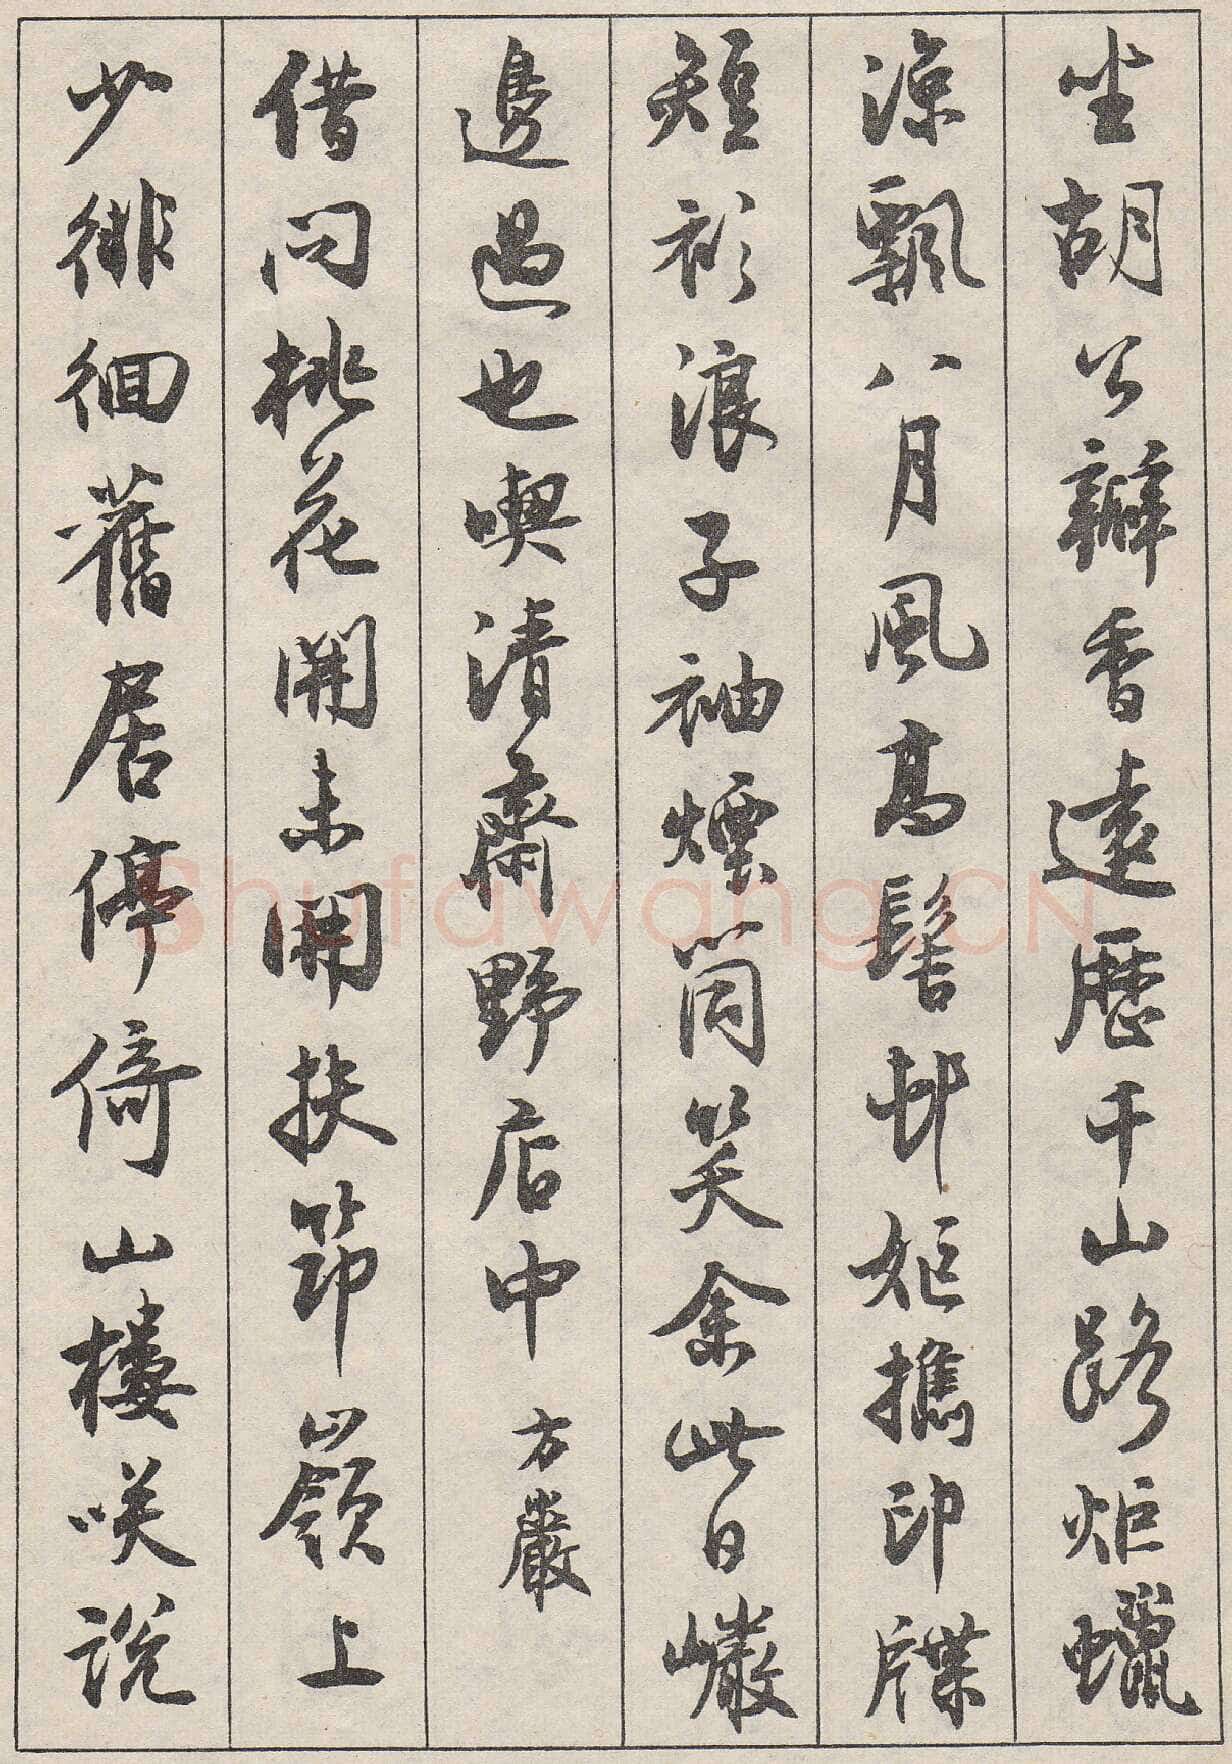 坐胡公瓣香遠歷千山路炬蠟
涼飄八月風高髻邨姬攜印牒
短衫浪子袖煙筒笑余此日巖
邊過也喫清齋野店中方巖
借問桃花開未開扶筇嶺上
少徘徊舊居停倚山樓咲說
Shufawang.CN